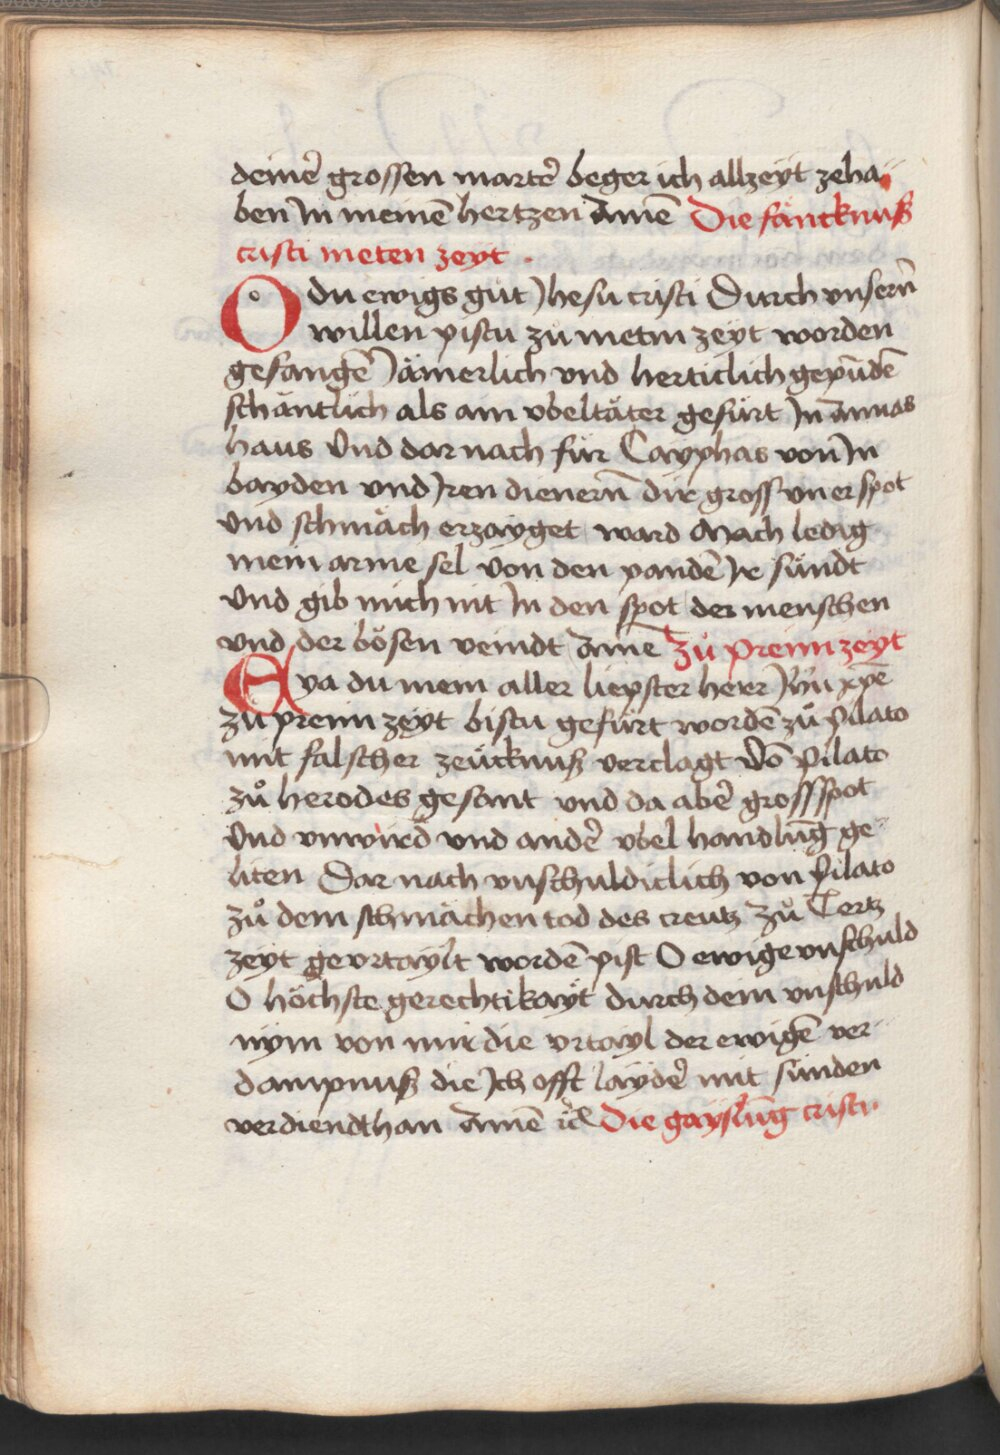 deine᷑ grossen marte᷑ beger ich allzeyt zeha
ben In meinē hertzen Amē Die fäncknuß
cristi meten zeyt .
O du ewigs gůt Jhesu cristi Durch vnserñ
willen pistu zů metin zeyt worden
gefangē Jämerlich vnd herticlich gepūdē
schäntlich als ain vbeltäter gefürt In annas
haus Vnd dar nach für Cayphas von In
bayden vnd Iren dienerñ dir gross vner spot
Vnd schmäch erzayget ward Mach ledig
mein arme sel von den pandē Ir sündt
Vnd gib mich nit In den spot der menschen
vnd der bösen veindt Amē Zů preim zeyt
Eya du mein aller liepster herr Jhū xpē
zu preim zeyt bistu gefürt wordē zů pilato
mit falscher zeücknuß verclagt Vō pilato
zů herodes gesant vnd da abe᷑ gross spot
Vnd vnwird vnd ande᷑ vbel handlūg ge-
liten Dar nach vnschuldiclich von pilato
zů dem schmächen tod des creutz zů Tertz
zeyt geurtaylt wordē pist O ewige vnschuld
O höchste gerechtikayt durch dein vnschuld
nym von mir die vrtayl der ewigē ver-
dampnuß die Ich offt layde᷑ mit sünden
verdiendt han Amē rc̄ Die gayslūg cristi